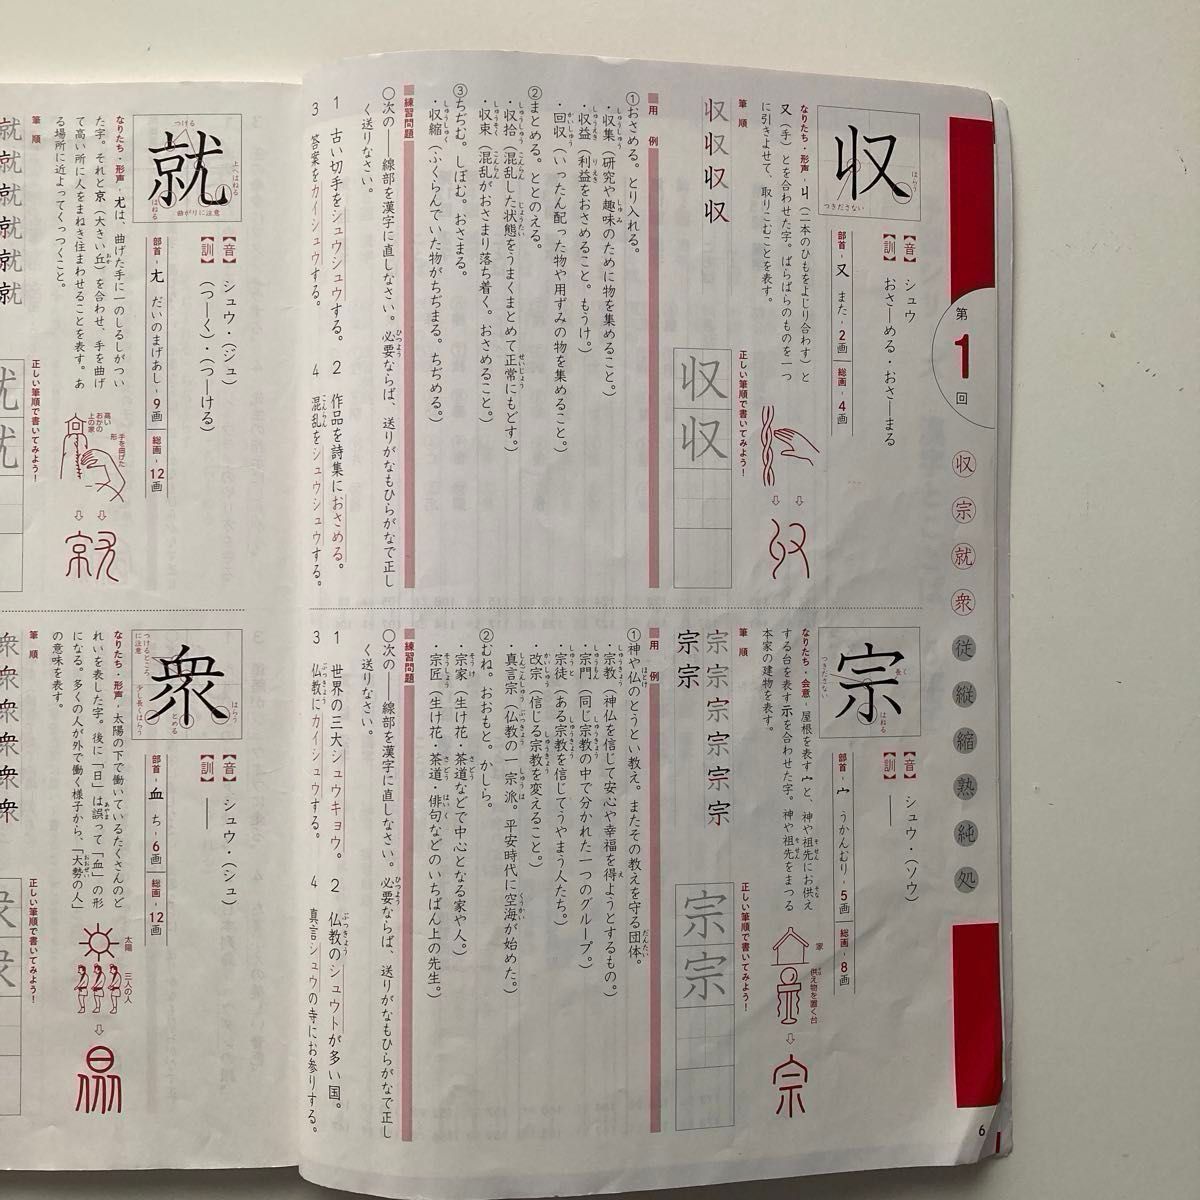 第
1
回
収
宗
就
衆
従
縦
縮
熟
純
処
収
はらう
つきださない
【音】 シュウ
【訓】 おさ―める・おさ―まる
部首・又 また・2画 総画・4画
なりたち・形声・丩(二本のひもをよじり合わす)と
又(手)とを合わせた字。ばらばらのものを一つ
に引きよせて、取りこむことを表す。
筆順
収収収収
正しい筆順で書いてみよう!
収収
用例
①おさめる。とり入れる。
・収集(研究や趣味のために物を集めること。)
・収益(利益をおさめること。もうけ。)
・回収(いったん配った物や用ずみの物を集めること。)
②まとめる。ととのえる。
・収拾(混乱した状態をうまくまとめて正常にもどす。)
・収束(混乱がおさまり落ち着く。おさめること。)
③ちぢむ。しぼむ。おさまる。
・収縮(ふくらんでいた物がちぢまる。ちぢめる。)
練習問題
○次の――線部を漢字に直しなさい。必要ならば、送りがなもひらがなで正し
く送りなさい。
1 古い切手をシュウシュウする。 2 作品を詩集におさめる。
3 答案をカイシュウする。 4 混乱をシュウシュウする。
宗
長く
はねる
つきださない
【音】 シュウ・(ソウ)
【訓】 ――
部首・宀 うかんむり・5画 総画・8画
なりたち・会意・屋根を表す宀と、神や祖先にお供え
する台を表す示を合わせた字。神や祖先をまつる
本家の建物を表す。
家
供え物を置く台
筆順
宗宗宗宗宗宗
宗宗
正しい筆順で書いてみよう!
宗宗
用例
①神や仏のとうとい教え。またその教えを守る団体。
・宗教(神仏を信じて安心や幸福を得ようとするもの。)
・宗門(同じ宗教の中で分かれた一つのグループ。)
・宗徒(ある宗教を信じてうやまう人たち。)
・改宗(信じる宗教を変えること。)
・真言宗(仏教の一宗派。平安時代に空海が始めた。)
②むね。おおもと。かしら。
・宗家(生け花・茶道などで中心となる家や人。)
・宗匠(生け花・茶道・俳句などのいちばん上の先生。)
練習問題
○次の――線部を漢字に直しなさい。必要ならば、送りがなもひらがなで正し
く送りなさい。
1 世界の三大シュウキョウ。 2 仏教のシュウトが多い国。
3 仏教にカイシュウする。 4 真言シュウの寺にお参りする。
6
就
つける
上へはねる
はねる
曲がりに注意
【音】 シュウ・(ジュ)
【訓】 (つ―く)・(つ―ける)
部首・尢 だいのまげあし・9画 総画・12画
なりたち・形声・尤は、曲げた手に一のしるしがつい
た字。それと京(大きい丘)を合わせ、手を曲げ
て高い所に人をまねき住まわせることを表す。あ
る場所に近よってくっつくこと。
高い
おかの
上の家
手を曲げた
形
筆順
就就就就就就
正しい筆順で書いてみよう!
就就
衆
つけるところ
に注意
少し長くはらう
とめる
はらう
【音】 シュウ・(シュ)
【訓】 ――
部首・血 ち・6画 総画・12画
なりたち・形声・太陽の下で働いているたくさんのど
れいを表した字。後に「日」は誤って「血」の形
になる。多くの人が外で働く様子から、「大勢の人」
の意味を表す。
太陽
三人の人
筆順
衆衆衆衆衆衆
正しい筆順で書いてみよう!
衆衆